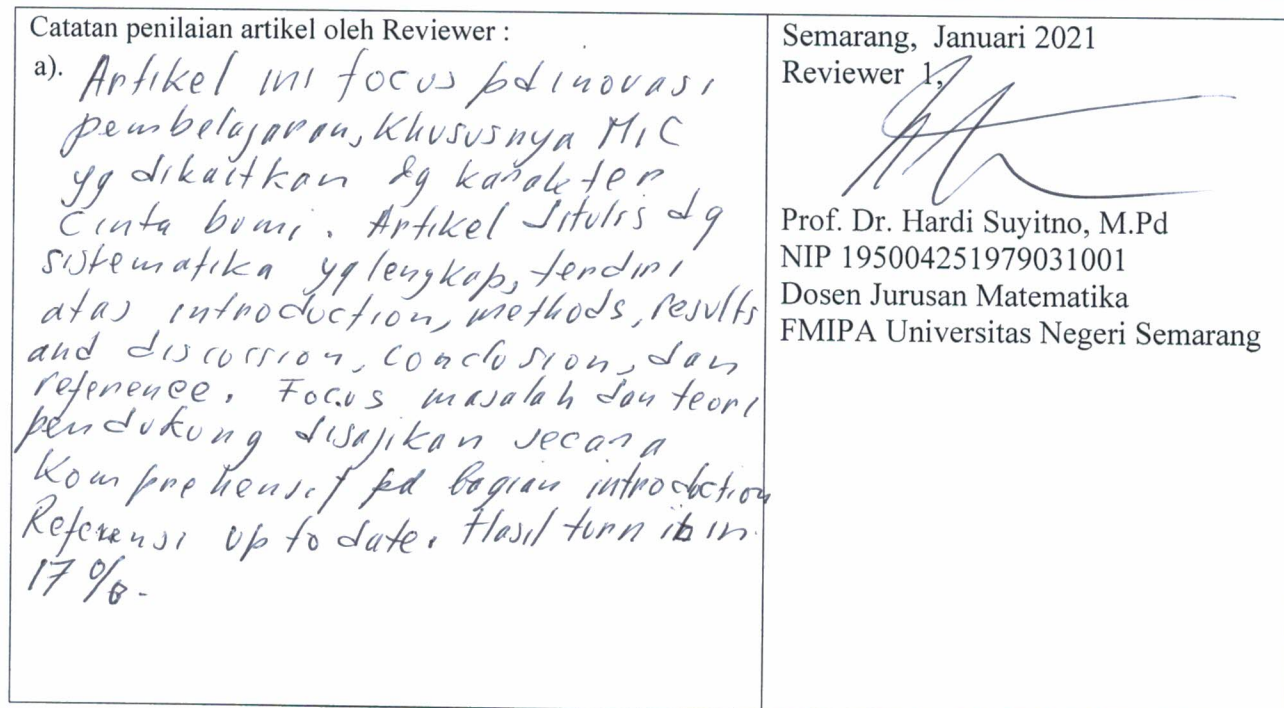 Catatan penilaian artikel oleh Reviewer :
a). Artikel ini focus pd inovasi
pembelajaran, Khususnya MiC
yg dikaitkan dg karakter
Cinta bumi. Artikel ditulis dg
sistematika yg lengkap, terdiri
atas introduction, methods, results
and discussion, conclusion, dan
reference. Focus masalah dan teori
pendukung disajikan secara
Komprehensif pd bagian introduction
Referensi up to date. Hasil turn it in
17 %.
Semarang, Januari 2021
Reviewer 1,
Prof. Dr. Hardi Suyitno, M.Pd
NIP 195004251979031001
Dosen Jurusan Matematika
FMIPA Universitas Negeri Semarang